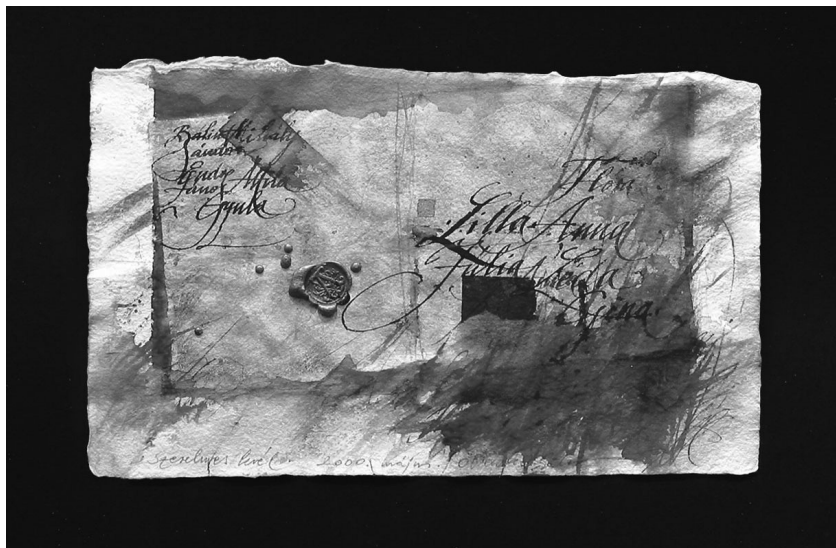 Balint Mihály
Sándor
Endre
János Attila
Gyula
Flóra
Lilla Anna
Júlia
Szerelmes levél 2000. május